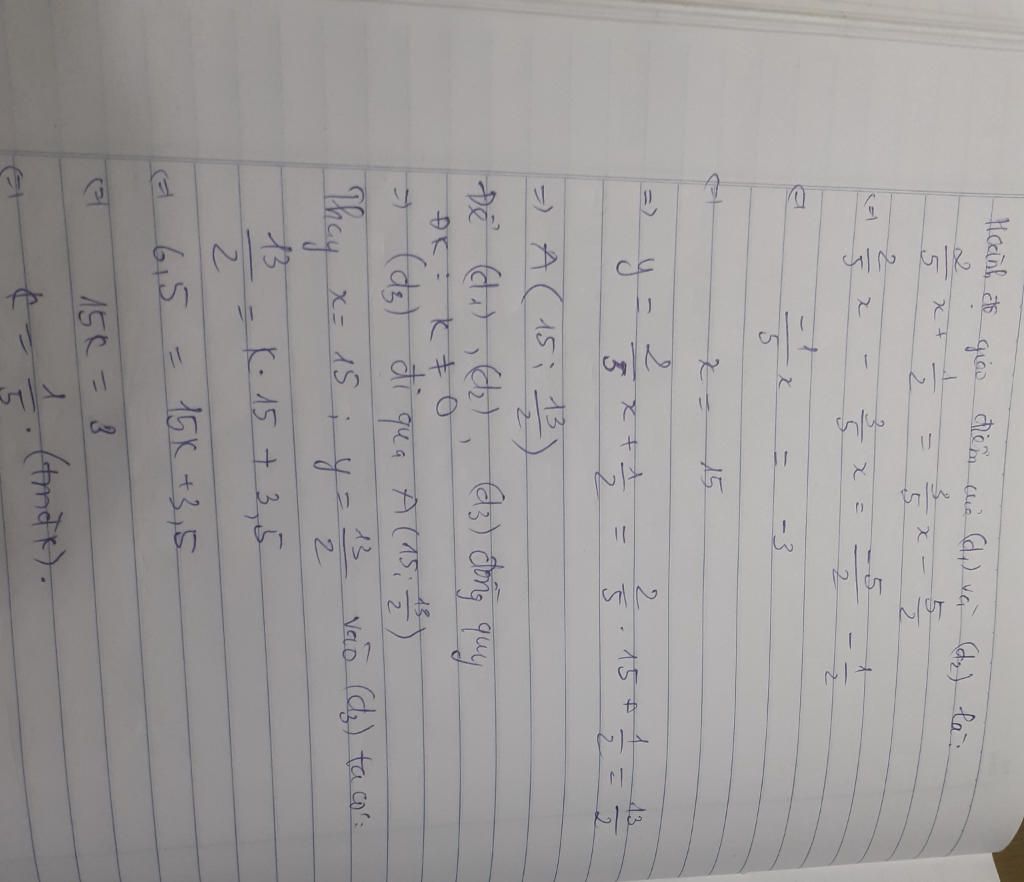 Hoành độ giao điểm của (d1) và (d2) là:
2/5 x + 1/2 = 3/5 x - 5/2
(=) 2/5 x - 3/5 x = -5/2 - 1/2
(=) -1/5 x = -3
(=) x = 15
=) y = 2/5 x + 1/2 = 2/5 . 15 + 1/2 = 13/2
=) A (15; 13/2)
Để (d1), (d2), (d3) đồng quy
ĐK: k ≠ 0
=) (d3) đi qua A (15; 13/2)
Thay x = 15; y = 13/2 vào (d3) ta có:
13/2 = k . 15 + 3,5
(=) 6,5 = 15k + 3,5
(=) 15k = 3
(=) k = 1/5 . (tmđk).